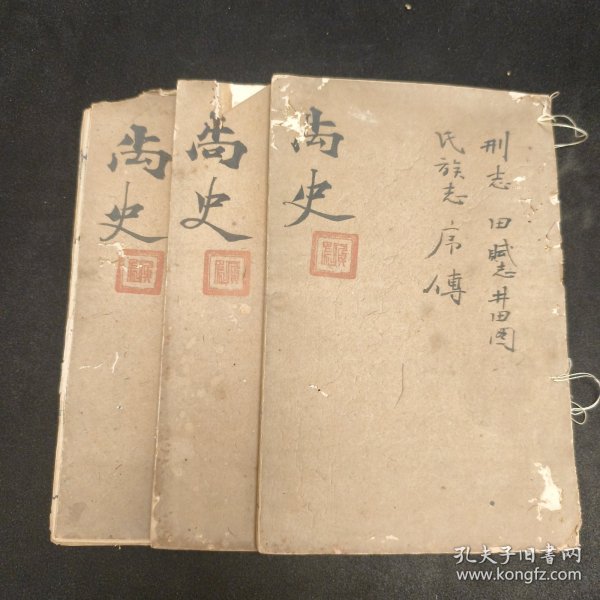 尚史
尚史
尚史
刑志 田赋志 井田图
氏族志 序傳
孔夫子旧书网
www.kongfz.com